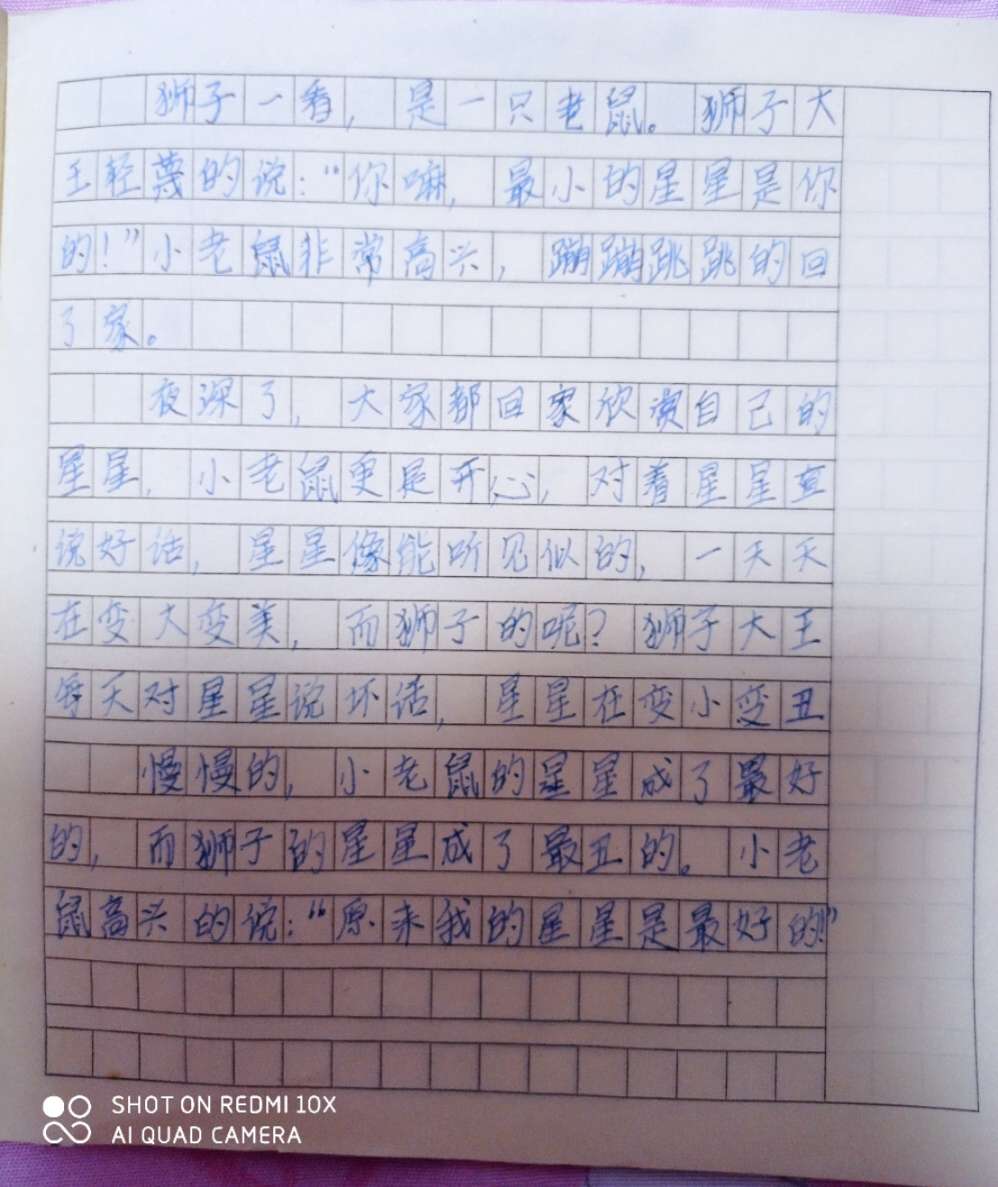 狮子一看，是一只老鼠。狮子大
王轻蔑的说：“你嘛，最小的星星是你
的！”小老鼠非常高兴，蹦蹦跳跳的回
了家。
夜深了，大家都回家欣赏自己的
星星，小老鼠更是开心，对着星星直
说好话，星星像能听见似的，一天天
在变大变美，而狮子的呢？狮子大王
每天对星星说坏话，星星在变小变丑
慢慢的，小老鼠的星星成了最好
的，而狮子的星星成了最丑的。小老
鼠高兴的说：“原来我的星星是最好的！”
SHOT ON REDMI 10X
AI QUAD CAMERA